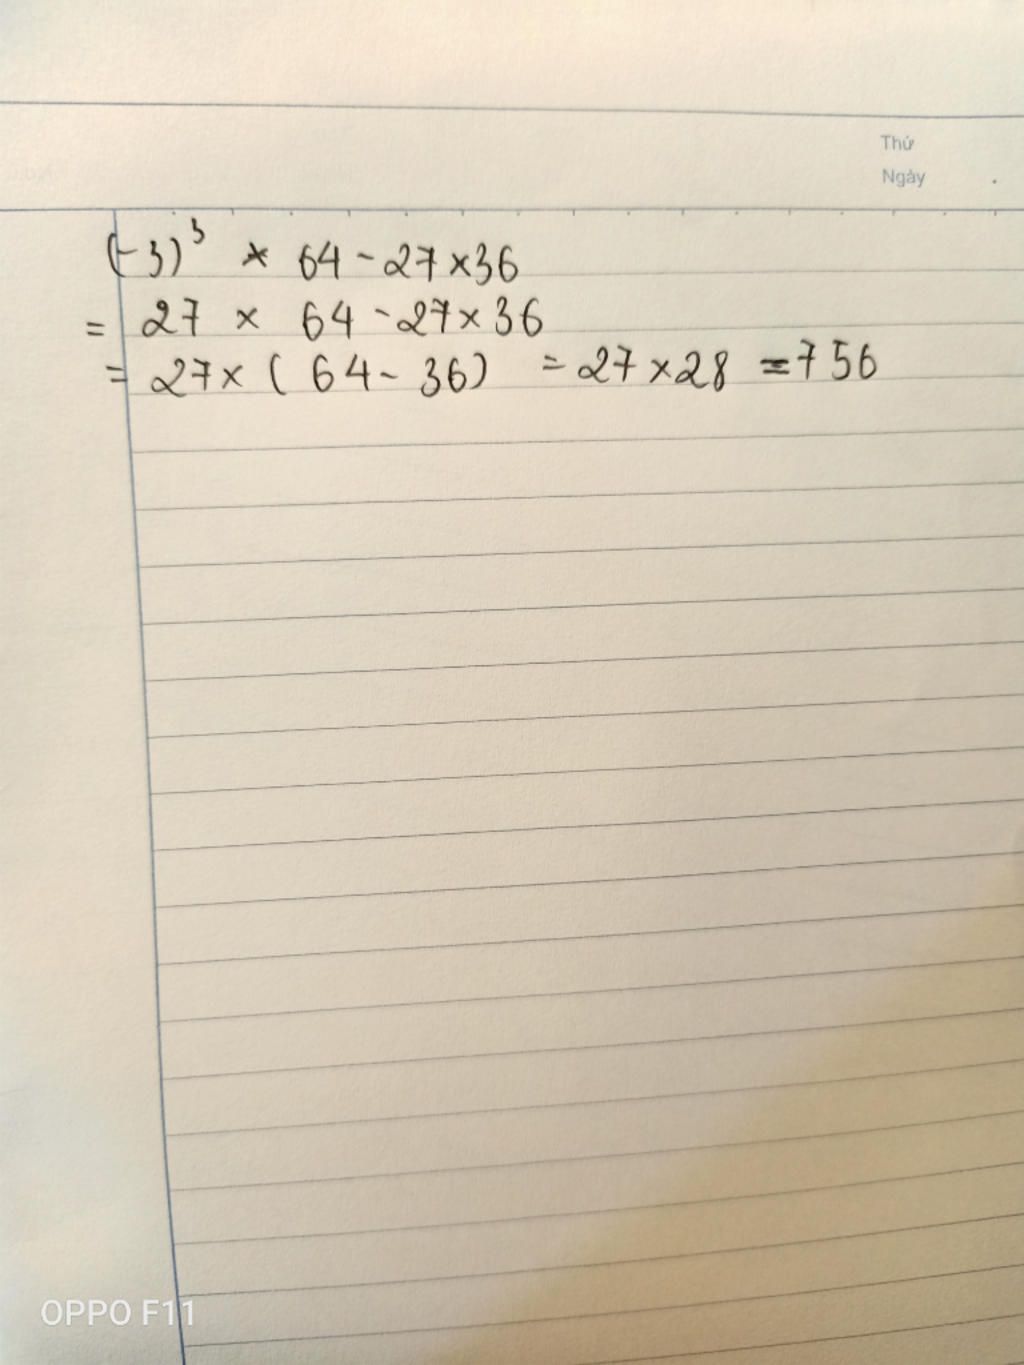 Thứ
Ngày
(-3)³ × 64 - 27 × 36
= 27 × 64 - 27 × 36
= 27 × ( 64 - 36) = 27 × 28 = 756
OPPO F11